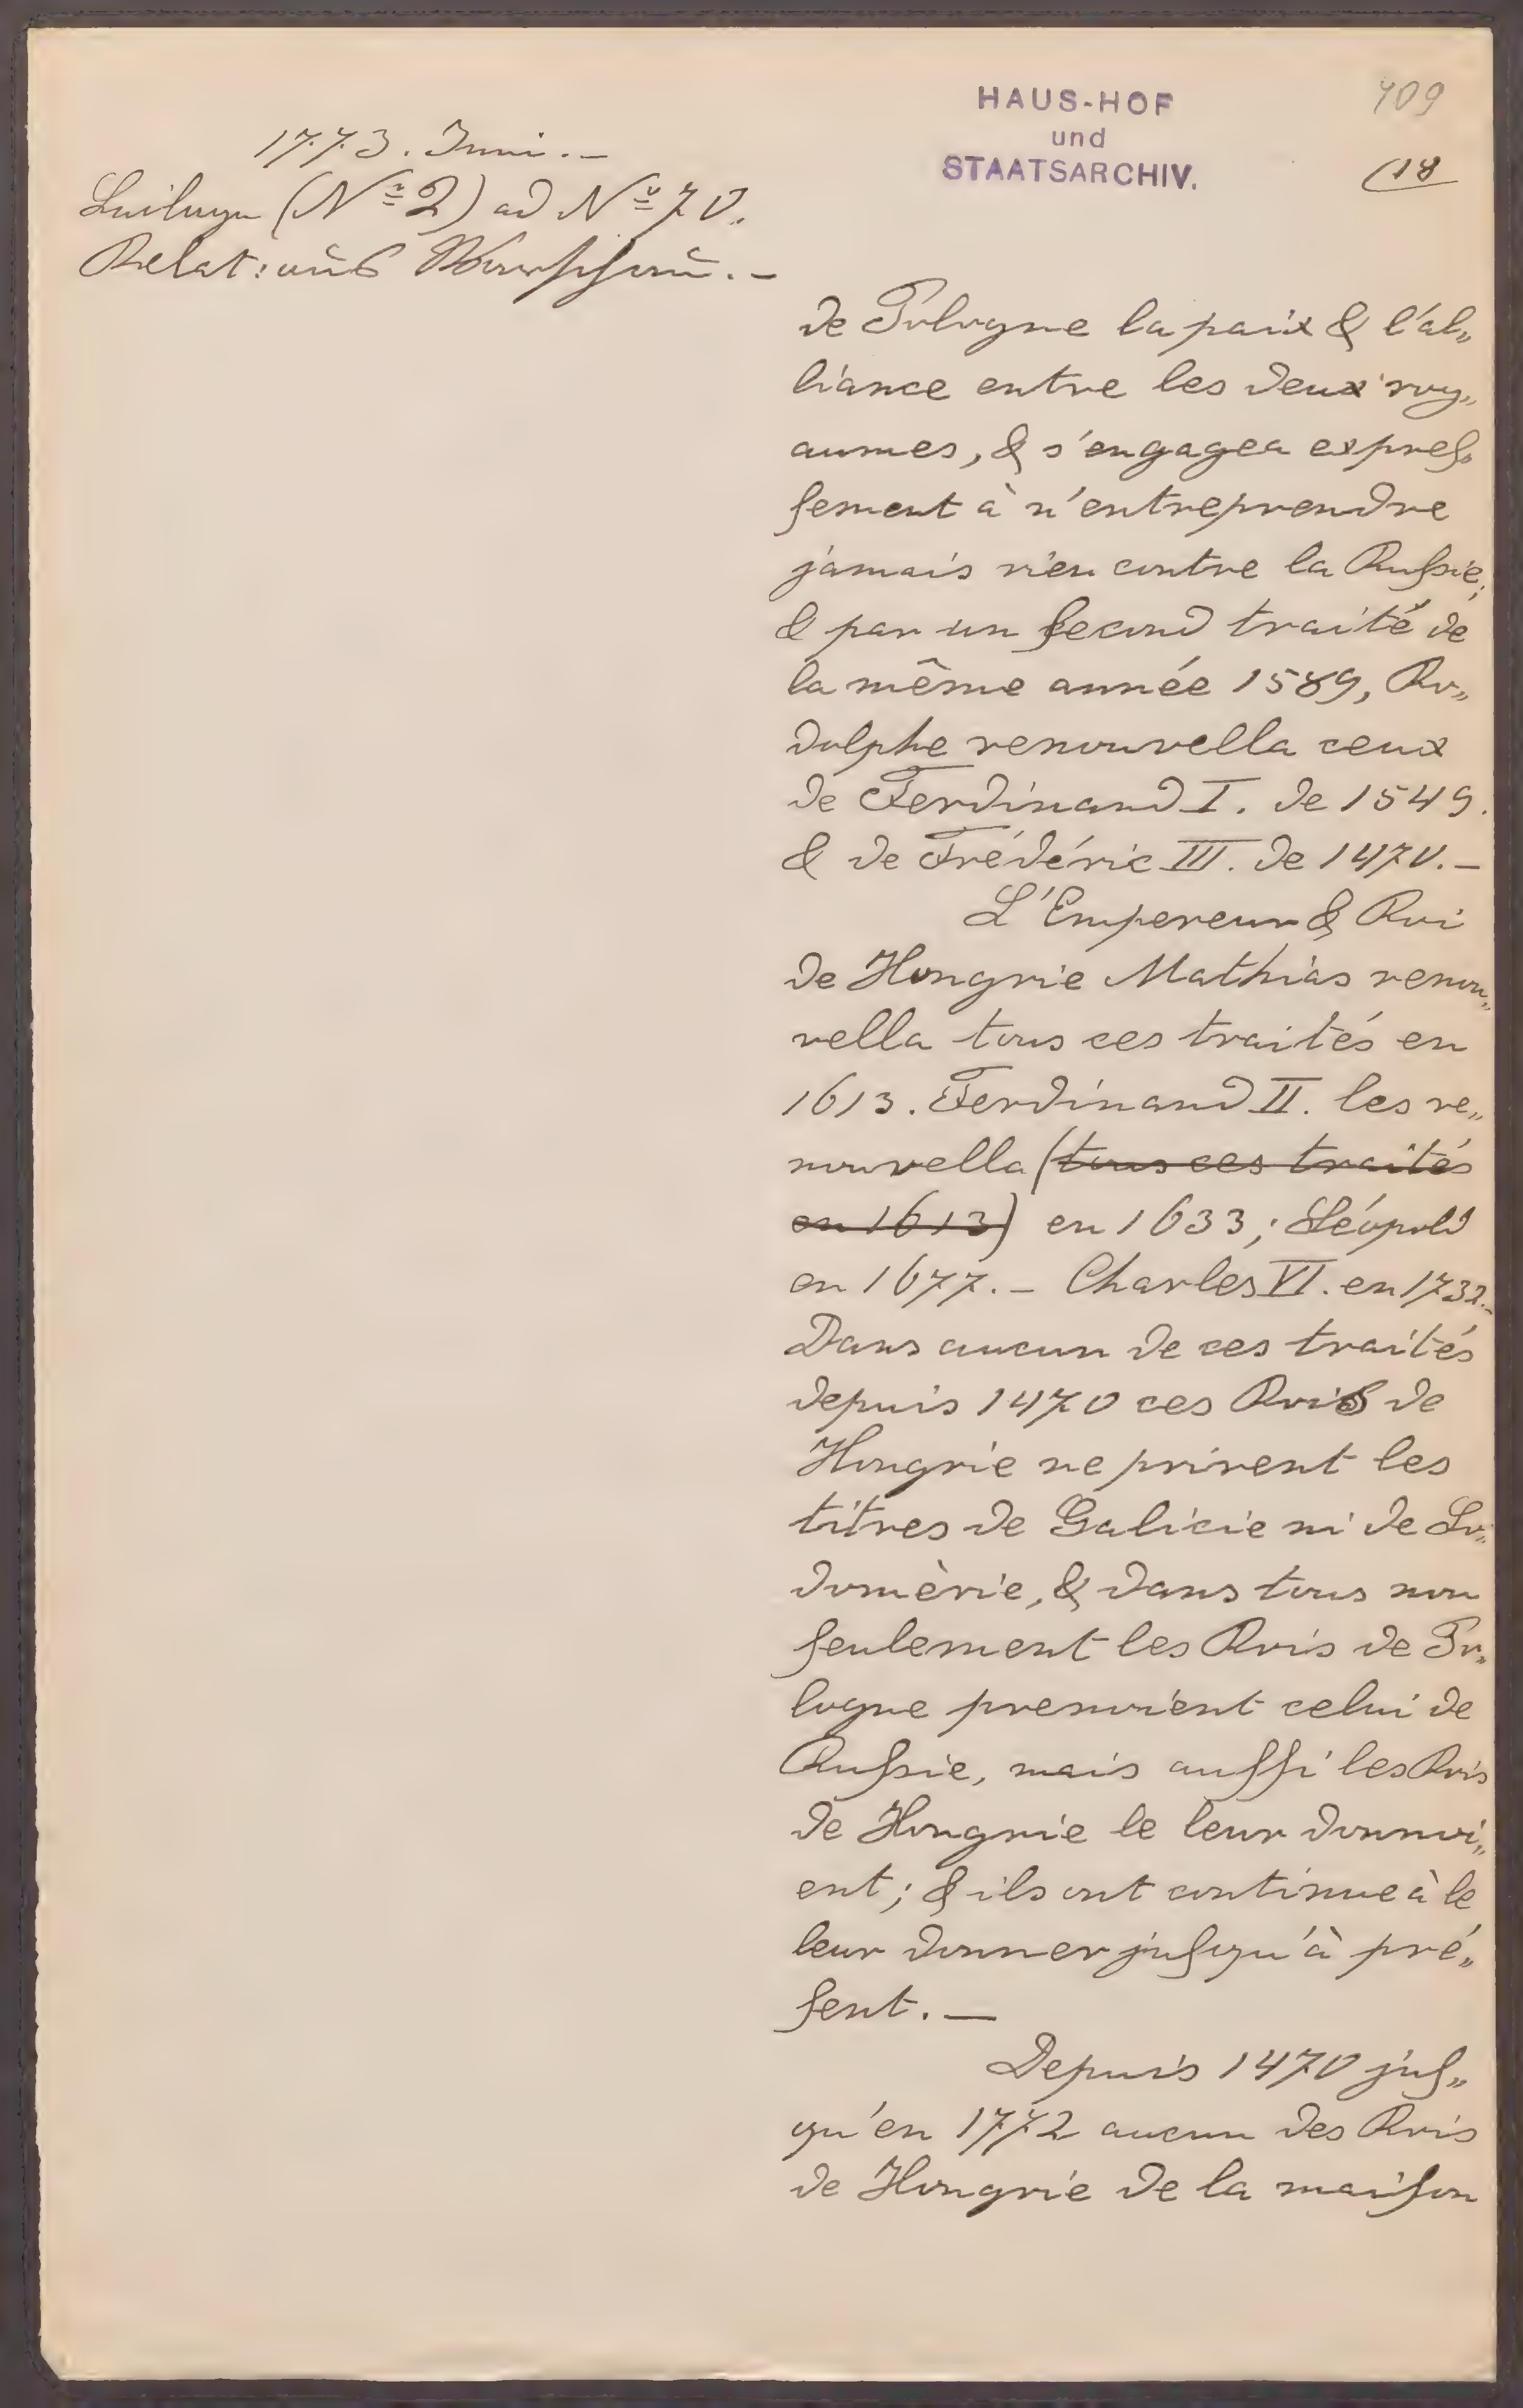 HAUS-HOF
und
STAATSARCHIV.
409
(18
1773. Juni. –
Beilage (Nº 2) ad Nº 70.
Relat: aus Warschau. –
de Pologne la paix & l'al„
liance entre les deux roy„
aumes, & s'engagea expreſ„
ſement à n'entreprendre
jamais rien contre la Ruſsie;
& par un ſecond traité de
la même année 1589, Ro„
dolphe renouvella ceux
de Ferdinand I. de 1549.
& de Frédéric III. de 1470. –
L'Empereur & Roi
de Hongrie Mathias renou„
vella tous ces traités en
1613. Ferdinand II. les re„
nouvella (tous ces traités
en 1613) en 1633; Léopold
en 1677. – Charles VI. en 1732. –
Dans aucun de ces traités
depuis 1470 ces Rois de
Hongrie ne prirent les
titres de Galicie ni de Lo„
domèrie, & dans tous non
ſeulement les Rois de Po„
logne prenoient celui de
Ruſsie, mais auſſi les Rois
de Hongrie le leur donnoi„
ent; & ils ont continue à le
leur donner juſqu'à pré„
ſent. –
Depuis 1470 juſ„
qu'en 1772 aucun des Rois
de Hongrie de la maiſon